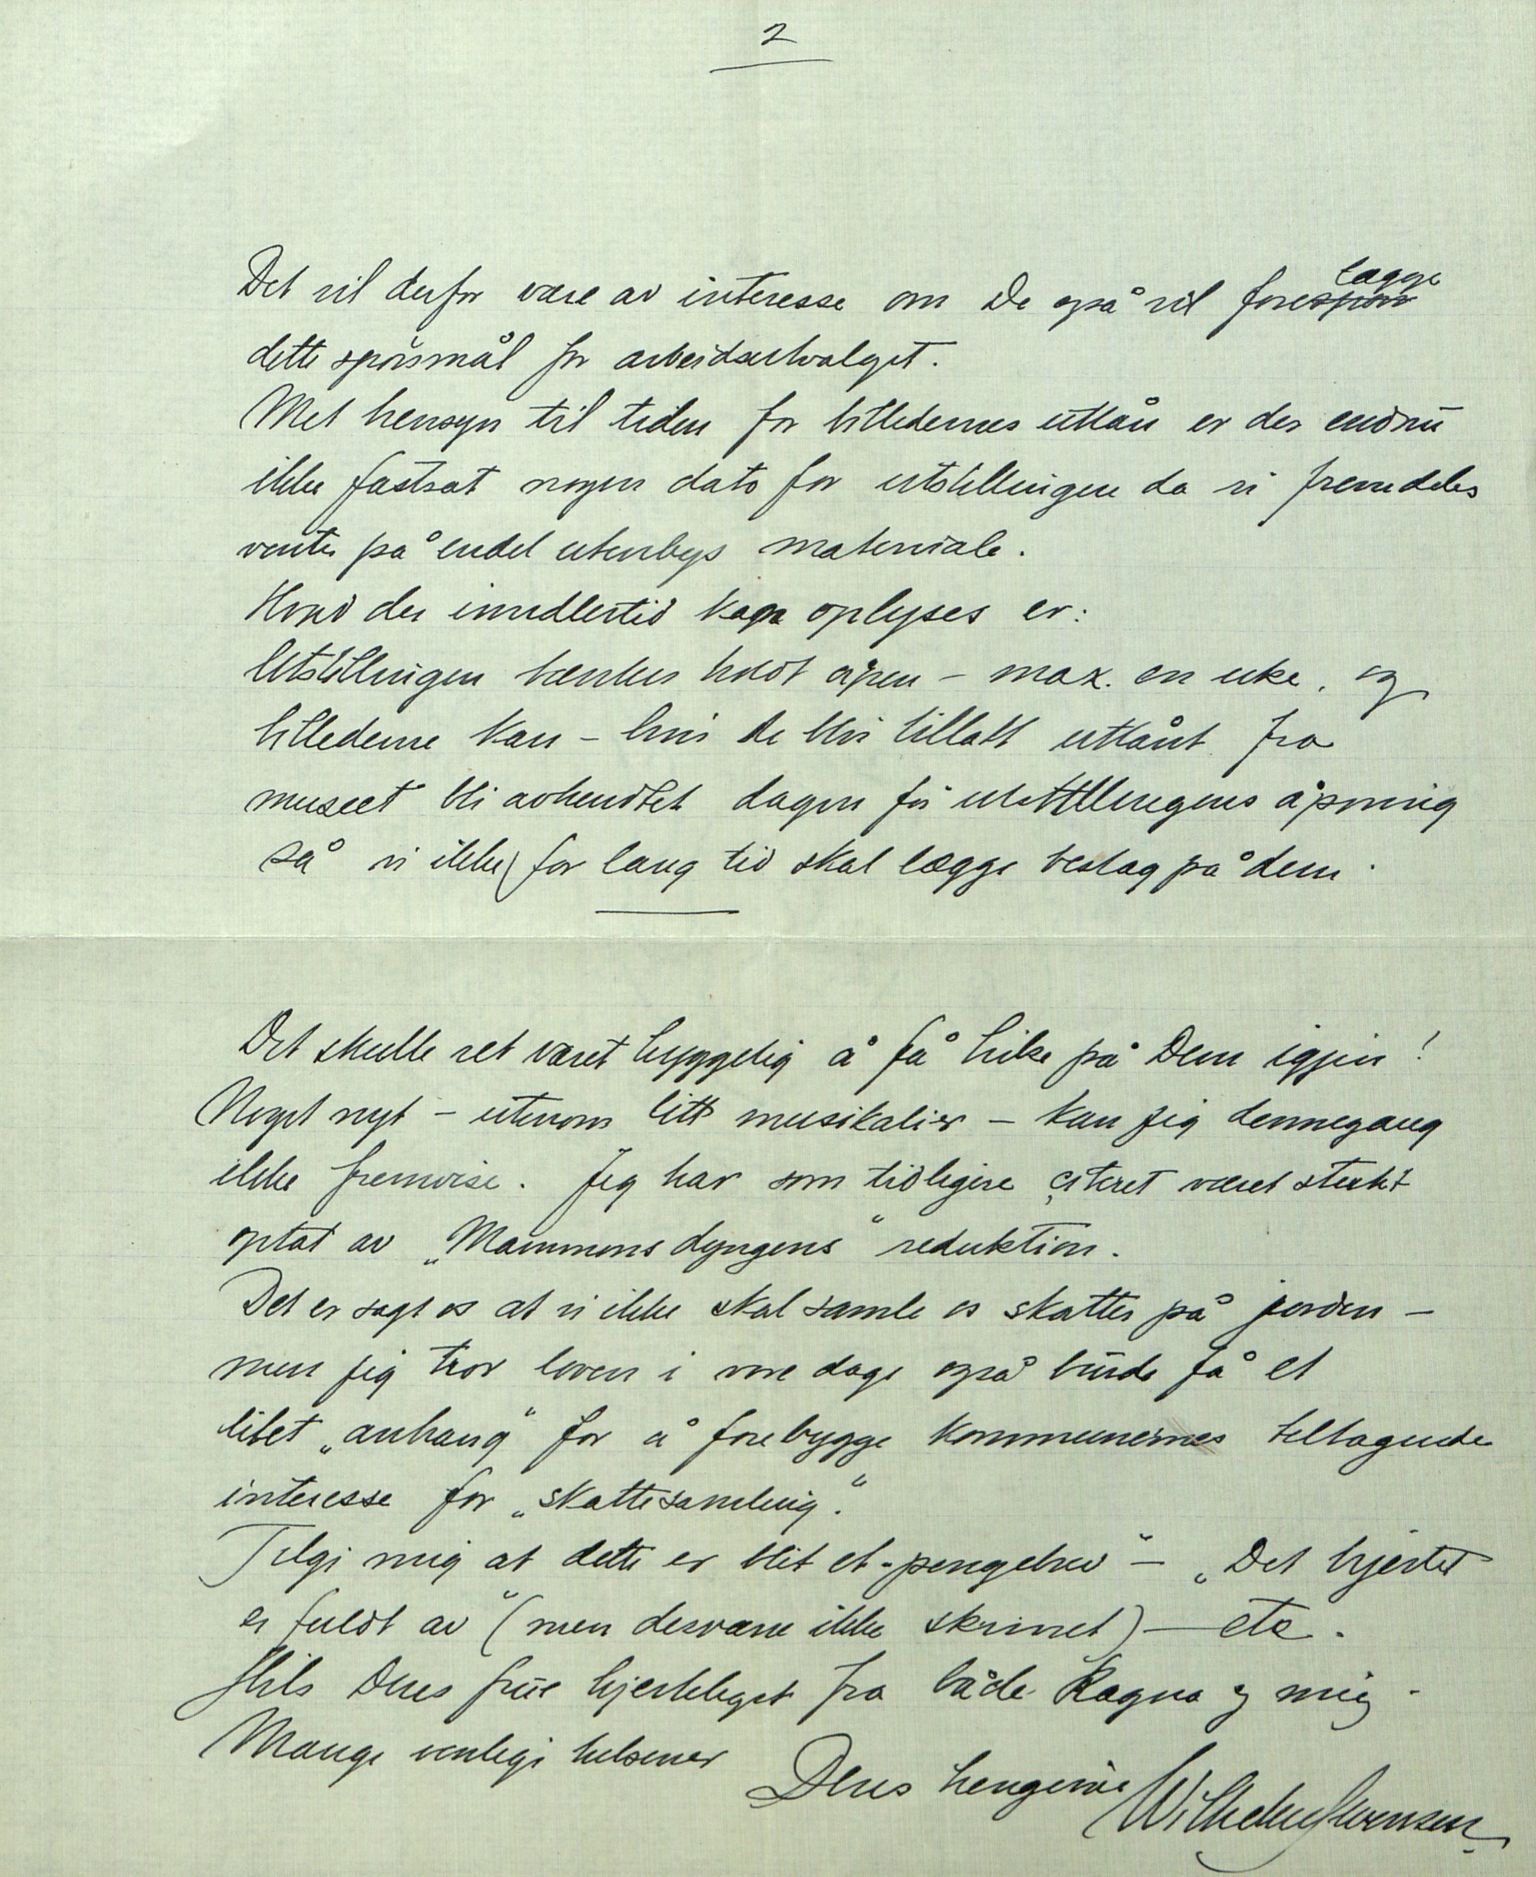 2
Det vil derfor være av interesse om De også vil forelægge
dette spörsmål for arbeidsutvalget.
Met hensyn til tiden for billedernes utlån er der endnu
ikke fastsat nogen dato for utstillingen da vi fremdeles
venter på endel utenbys materiale.
Hvad der imidlertid kan oplyses er:
Utstillingen tænkes holdt åpen – max. en uke, og
billederne kan – hvis de blir tillatt utlånt fra
museet bli avhendtet dagen för utstillingens åpning
så vi ikke for lang tid skal lægge beslag på dem.
Det skulle vel været hyggelig å få hilse på Dem igjen!
Noget nyt – utenom litt musikalier – kan jeg dennegang
ikke fremvise. Jeg har som tidligere citeret været sterkt
optat av „Mammons dyngens“ reduktion.
Det er sagt os at vi ikke skal samle os skatter på jorden –
men jeg tror loven i vore dage også burde få et
litet „anhang“ for å forebygge kommunernes tiltagende
interesse for „skattesamling“.
Tilgi mig at dette er blit et „pengebrev“ – „Det hjertet
er fuldt av“ (men desværre ikke skrinet) – etc.
Hils Deres frue hjerteligst fra både Ragna og mig.
Mange venlige hilsener
Deres hengivne